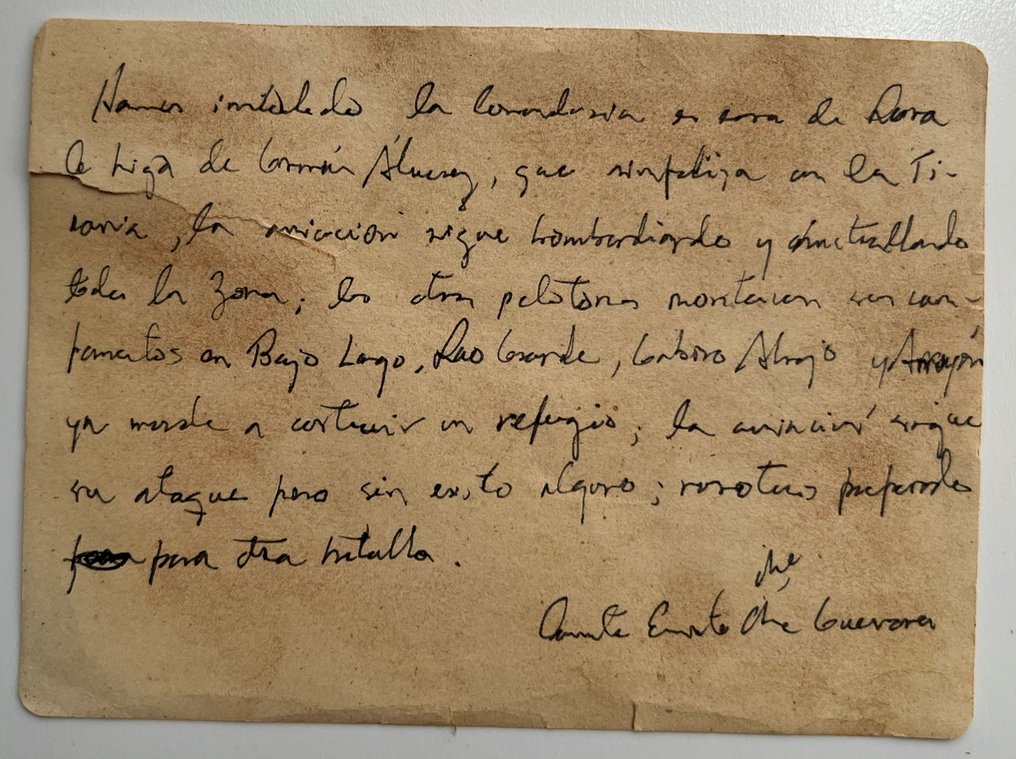 Hemos instalado la Comandancia en casa de Dora
la hija de Germán Álvarez, que simpatiza con la Ti-
rania, la aviación sigue bombardiando y ametrallando
toda la zona; los otros pelotones montaron sus cam-
pamentos en Bajo Largo, Rao Grande, Abajo y
ya mande a costruir un refugio; la aviación sigue
su ataque pero sin exito alguno; nosotros preparados
para otra batalla.
che
Comte Ernesto Che Guevara